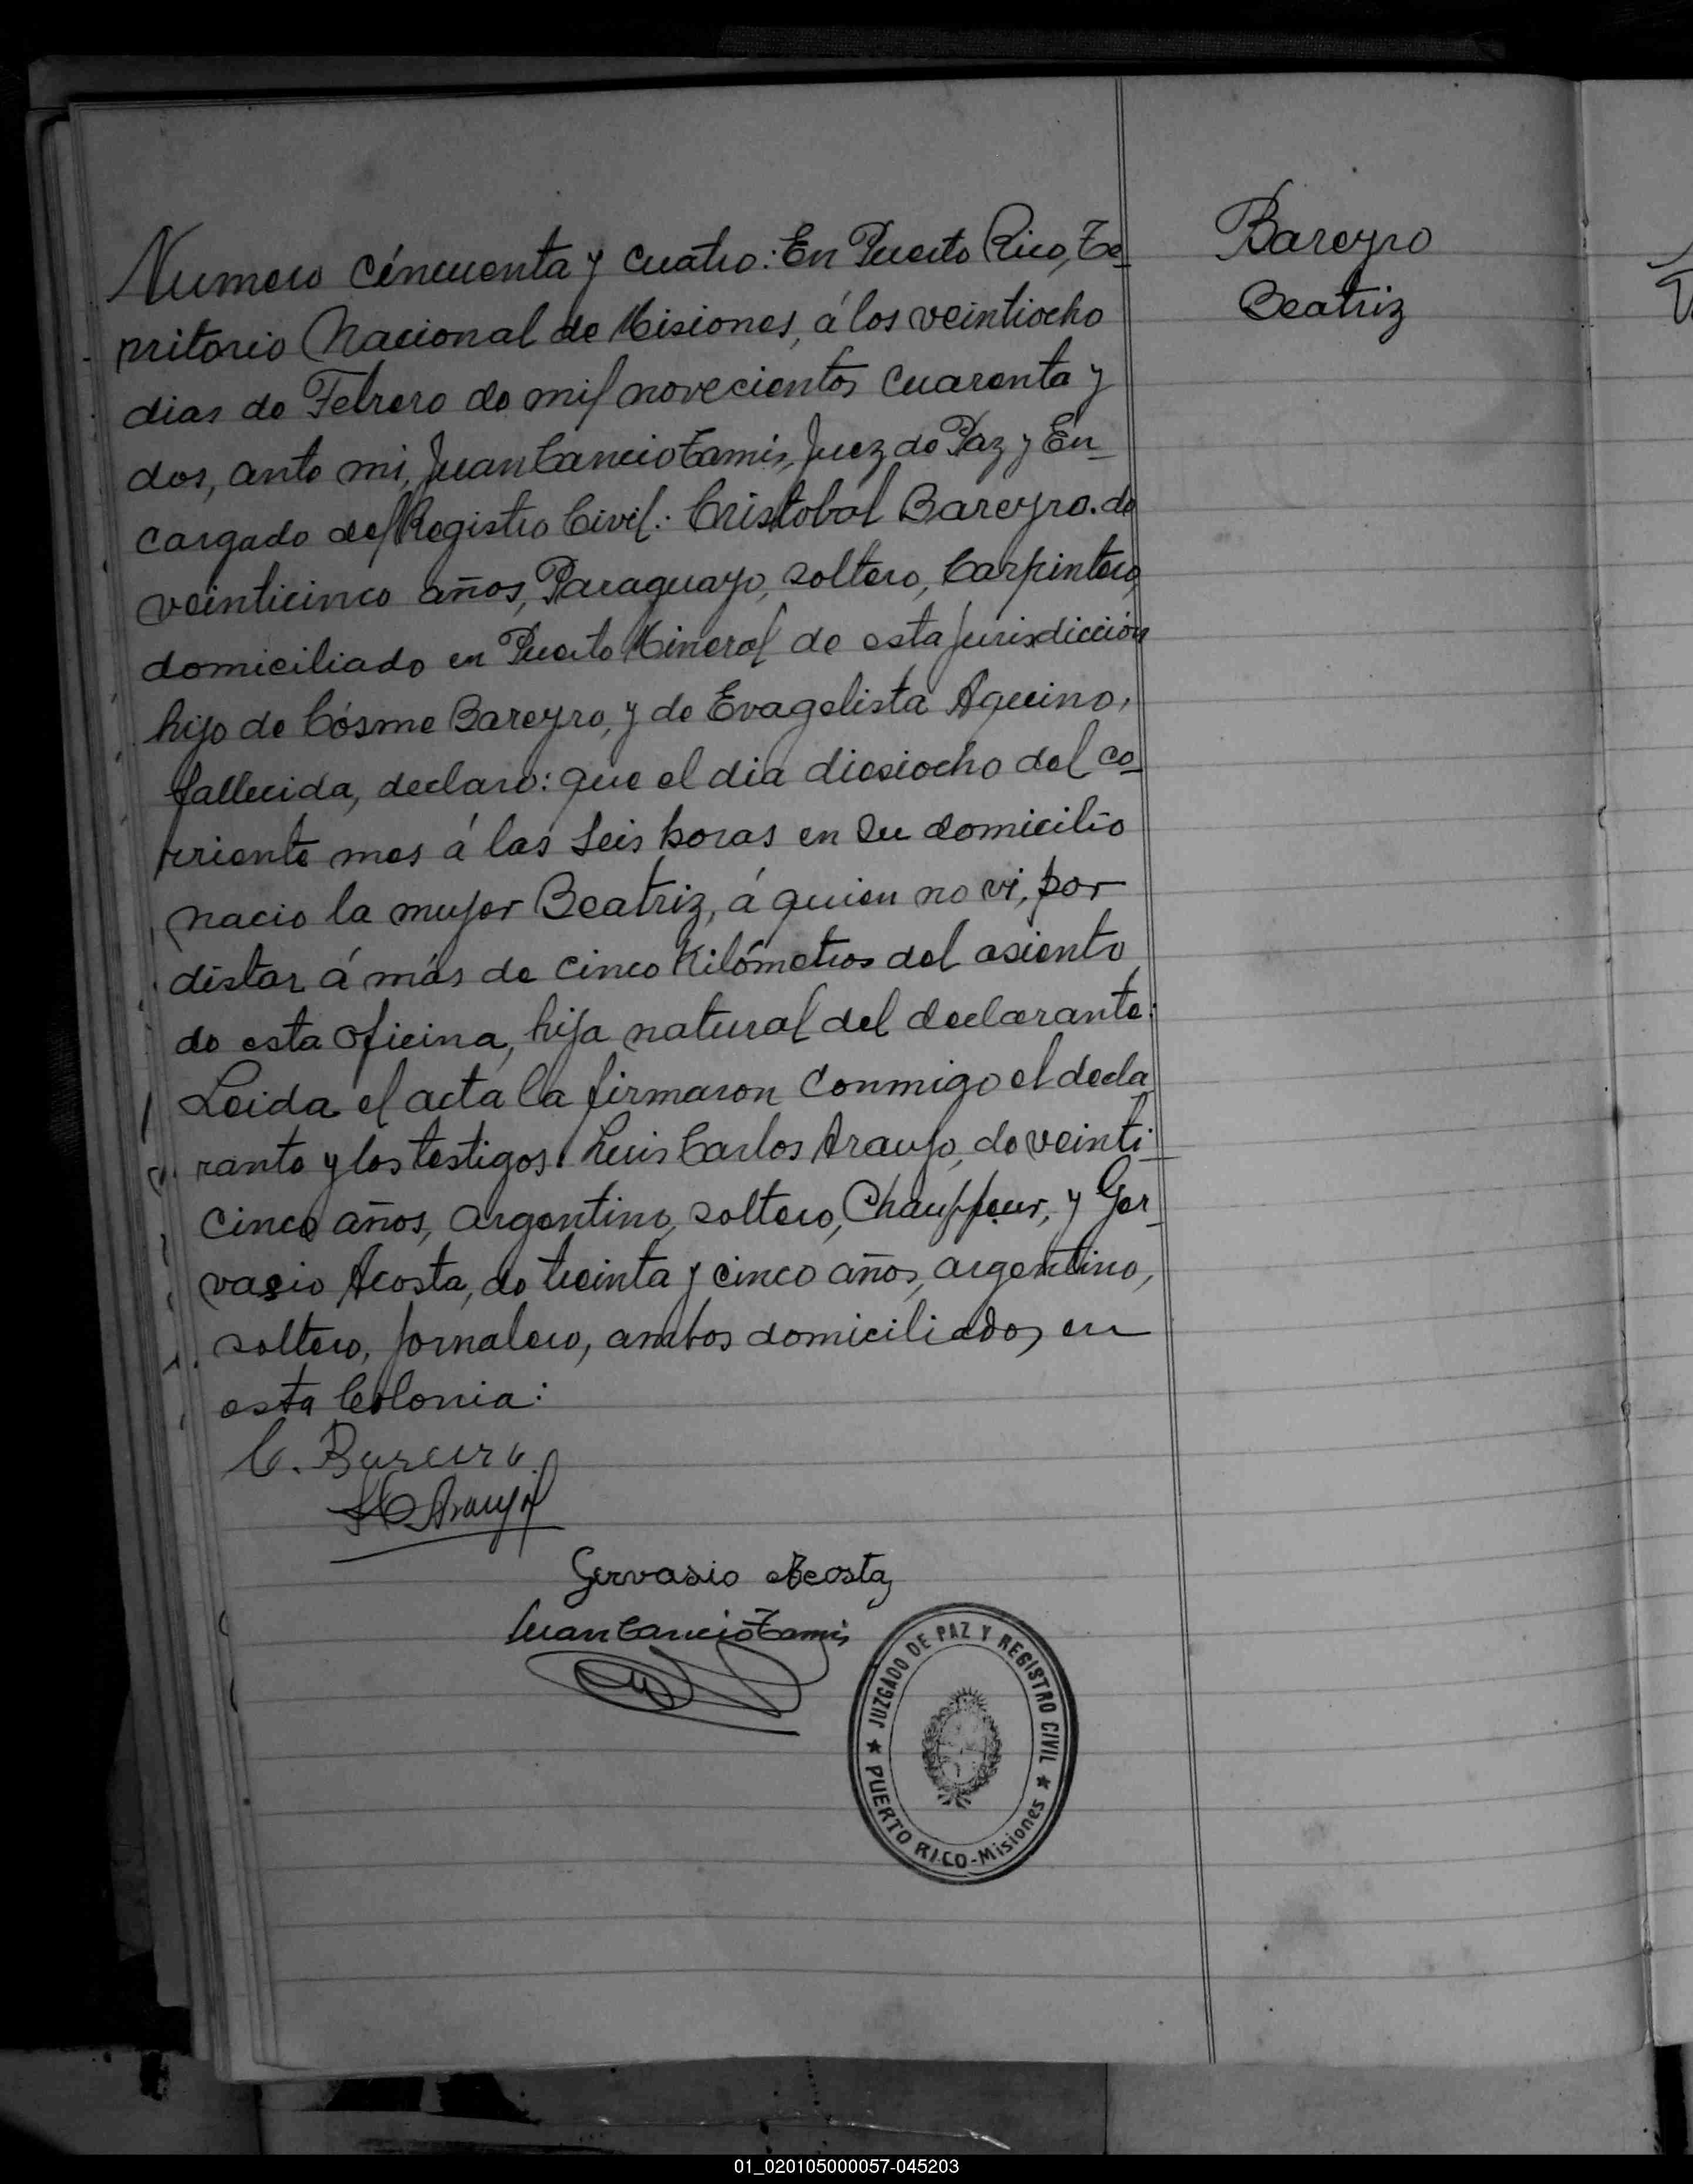 Numero cincuenta y cuatro: En Puerto Rico, Te-
rritorio Nacional de Misiones, á los veintiocho
dias de Febrero de mil novecientos cuarenta y
dos, ante mi, Juan Cancio Tamis, Juez de Paz y En-
cargado del Registro Civil: Cristobal Bareyro. de
veinticinco años, Paraguayo, soltero, Carpintero,
domiciliado en Puerto Mineral de esta Jurisdicción
hijo de Cósme Bareyro, y de Evagelista Aquino,
fallecida, declaro: que el dia diesiocho del co-
rriente mes á las seis horas en su domicilio
nacio la mujer Beatriz, á quien no vi, por
distar á más de cinco Kilómetros del asiento
de esta oficina, hija natural del declarante:
Leida el acta la firmaron conmigo el decla
rante y los testigos: Luis Carlos Araujo, de veinti-
cinco años, argentino, soltero, Chauffeur, y Ger-
vasio Acosta, de treinta y cinco años, argentino,
soltero, Jornalero, ambos domiciliados en
esta Colonia:
C. Bareiro.
LC Araujo
Gervasio Acosta
Juan Cancio Tamis
JUZGADO DE PAZ Y REGISTRO CIVIL
PUERTO RICO-Misiones
Bareyro
Beatriz
01_020105000057-045203